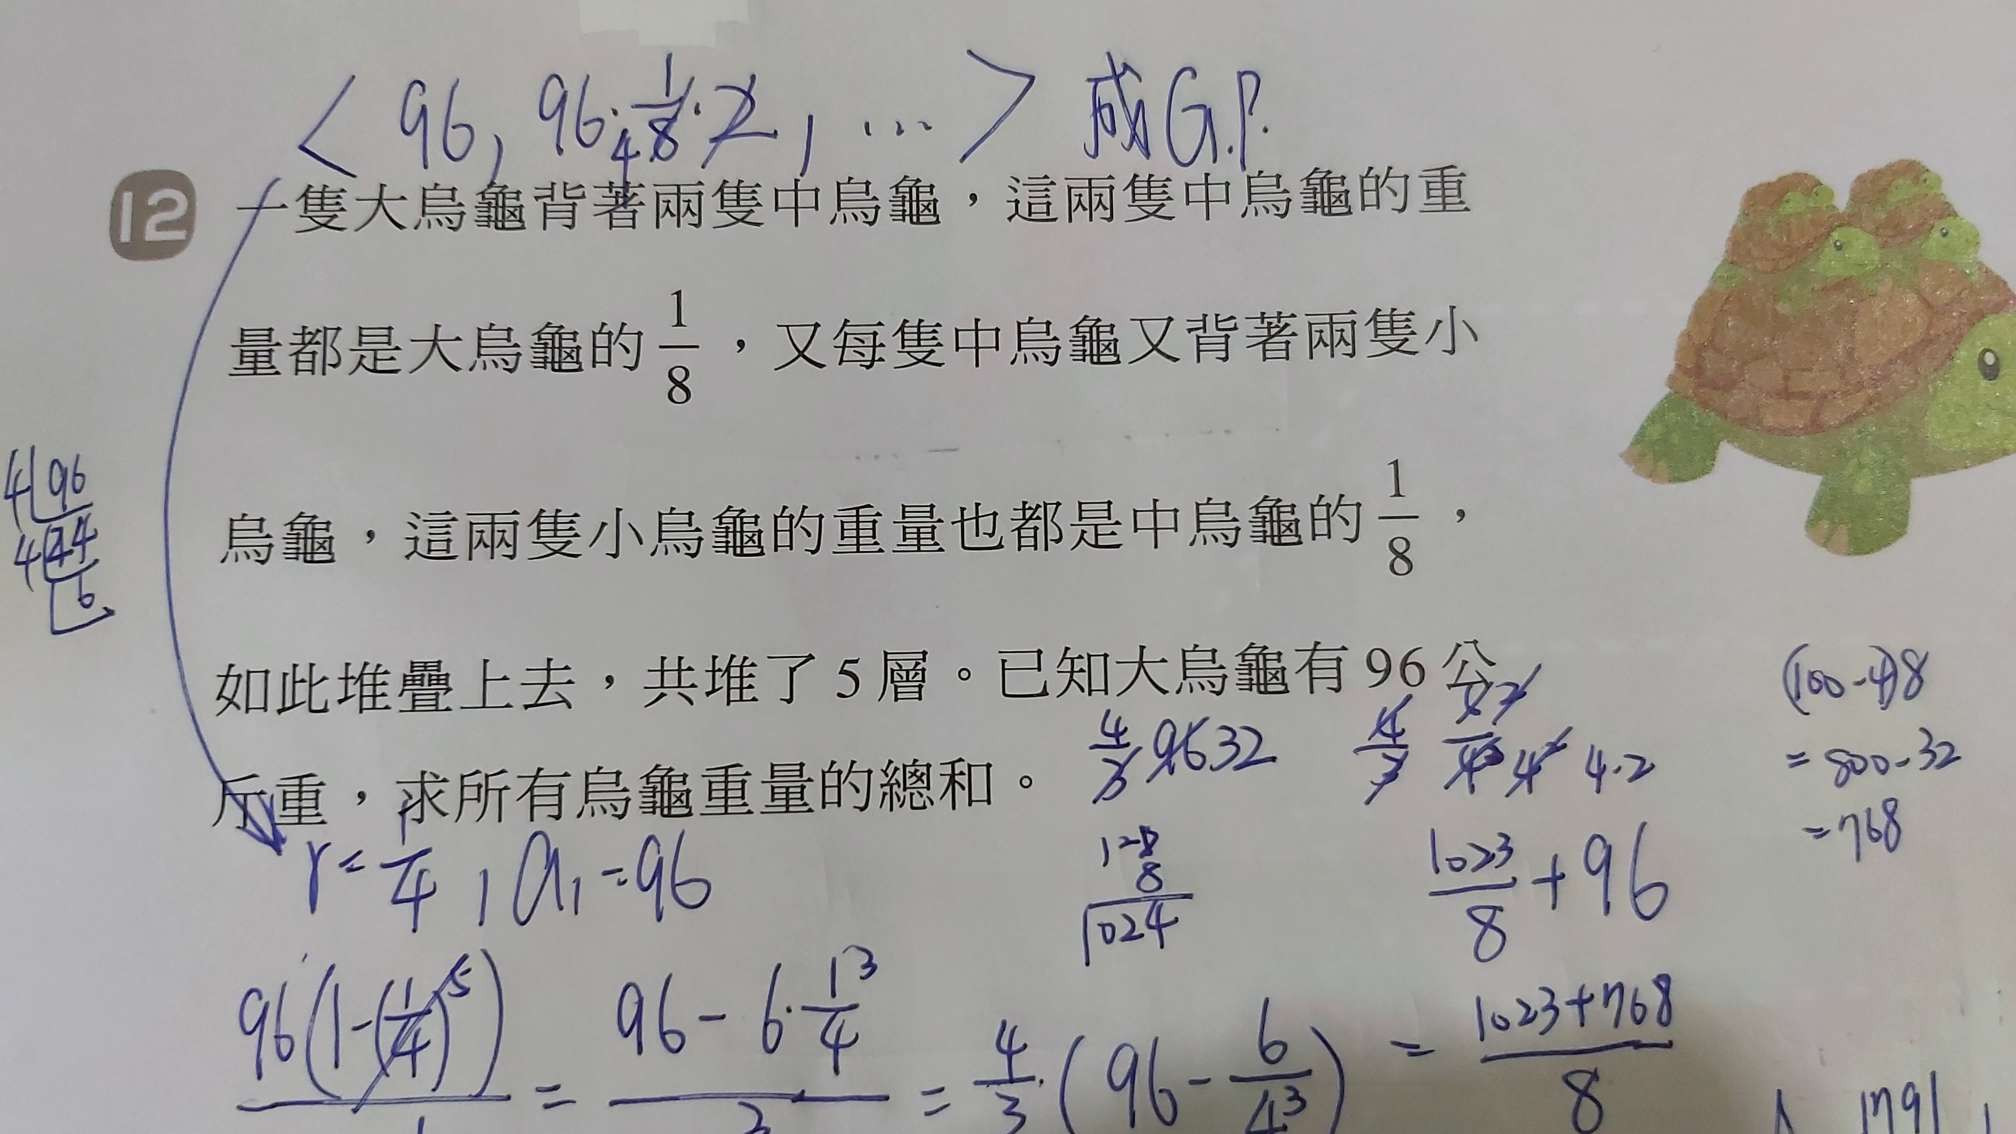 < 96, 96·1/8·2, ... > 成G.P.
12 一隻大烏龜背著兩隻中烏龜，這兩隻中烏龜的重
量都是大烏龜的 1/8，又每隻中烏龜又背著兩隻小
烏龜，這兩隻小烏龜的重量也都是中烏龜的 1/8，
如此堆疊上去，共堆了 5 層。已知大烏龜有 96 公
斤重，求所有烏龜重量的總和。
4 96
4 24
6
(100-4)8
= 800-32
= 768
4/3 96 32
4·2
r = 1/4, a₁ = 96
128
8
1024
1023/8 + 96
96(1-(1/4)^5)
= 96 - 6·1/4^3
= 4/3·(96 - 6/4^3)
= 1023+768/8
1791